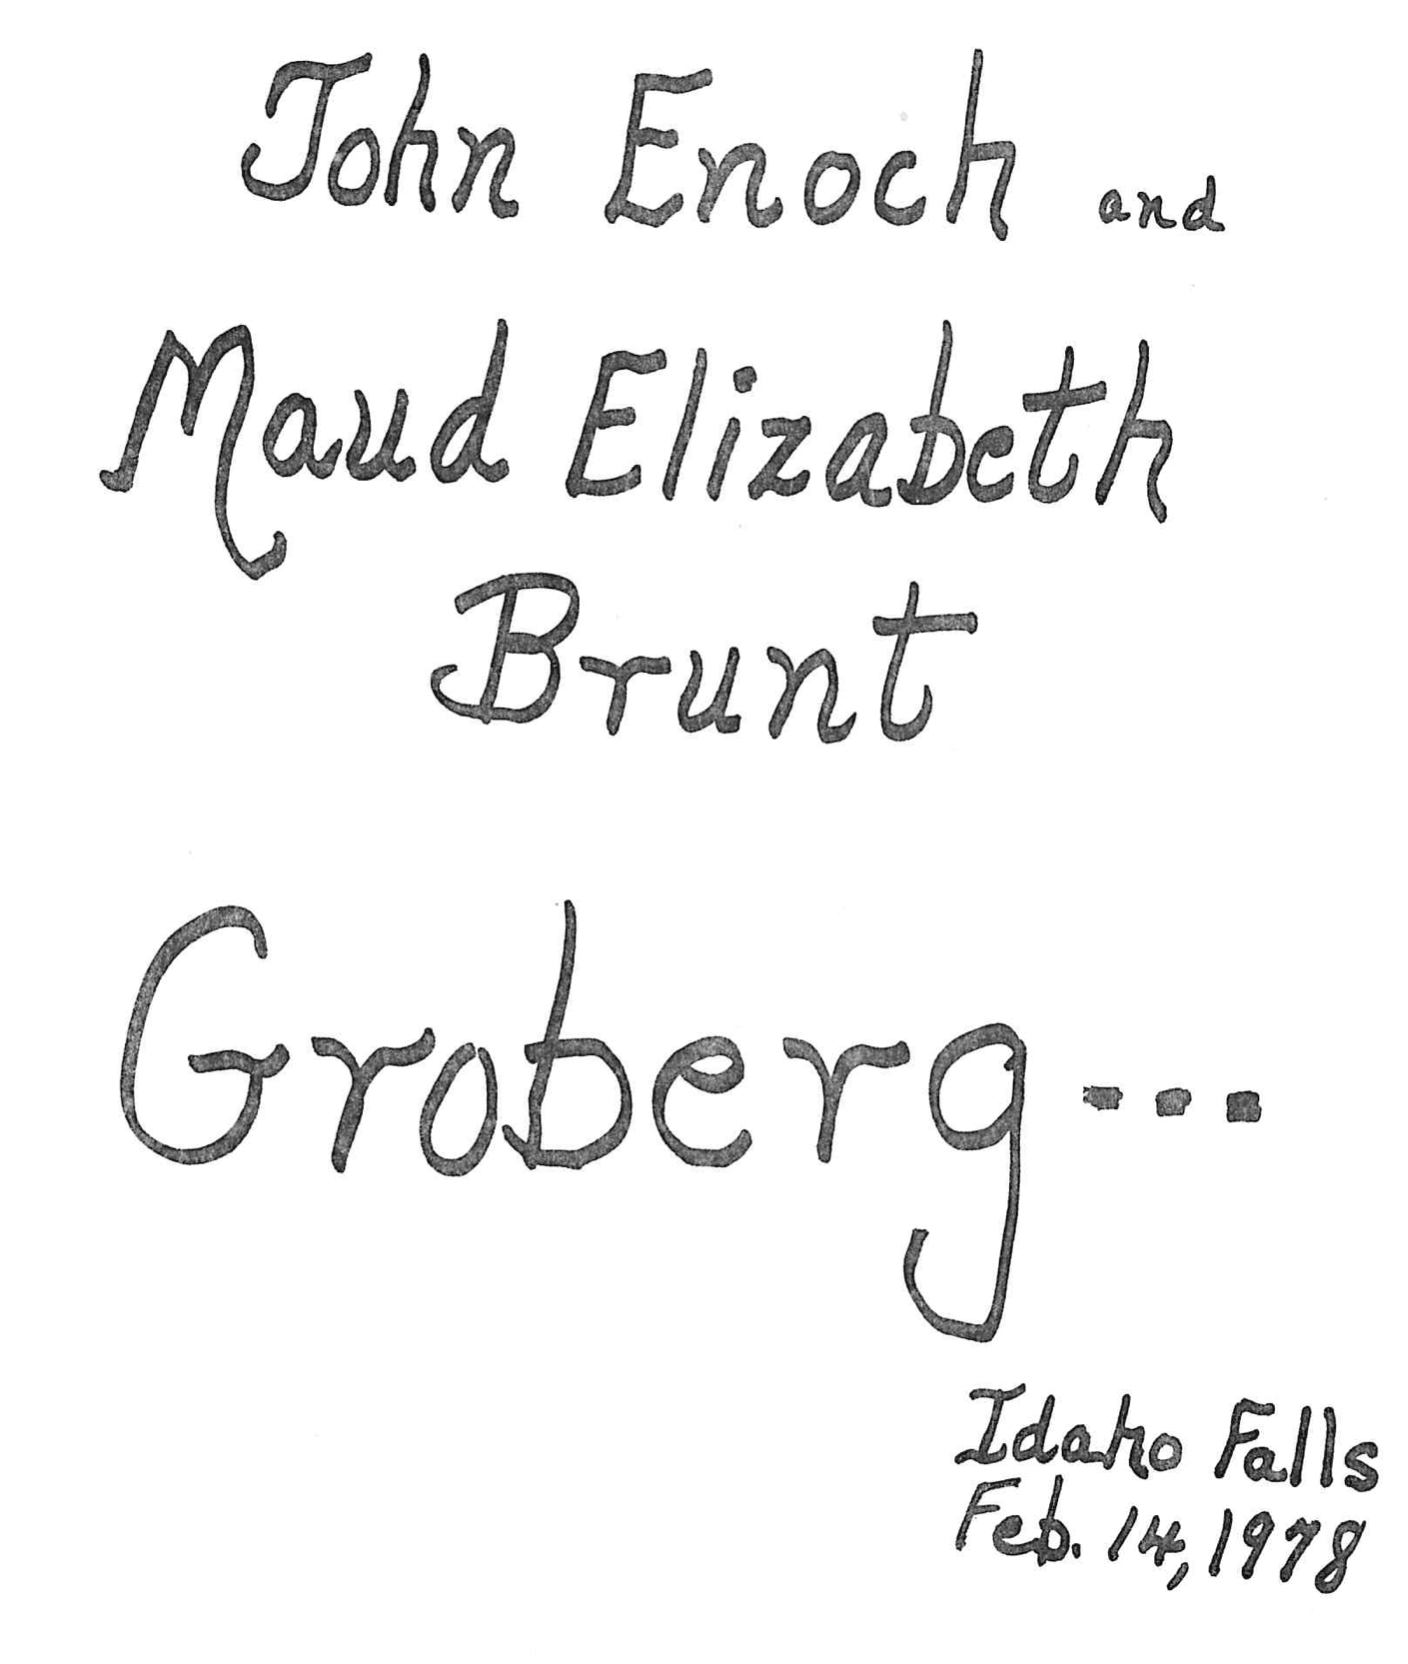 John Enoch and
Maud Elizabeth
Brunt
Groberg---
Idaho Falls
Feb. 14, 1978